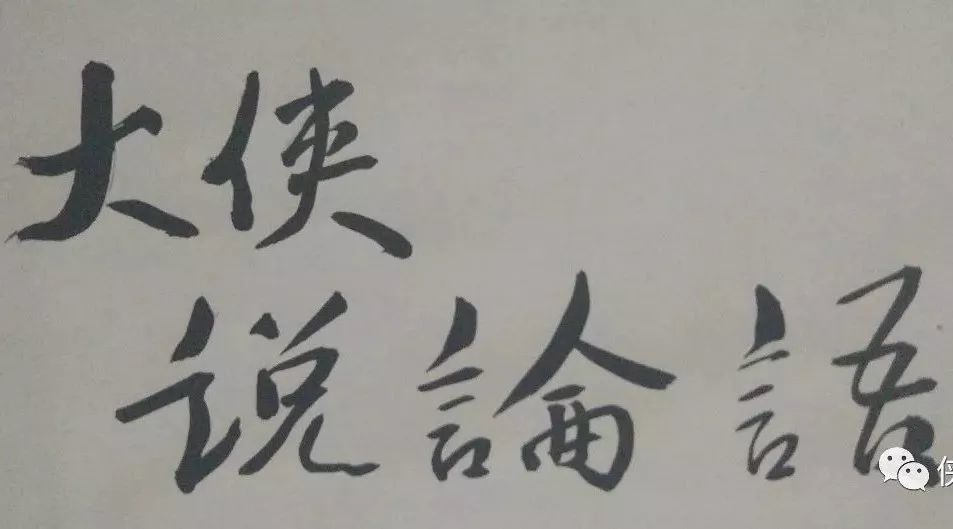 大侠
说論語
侠